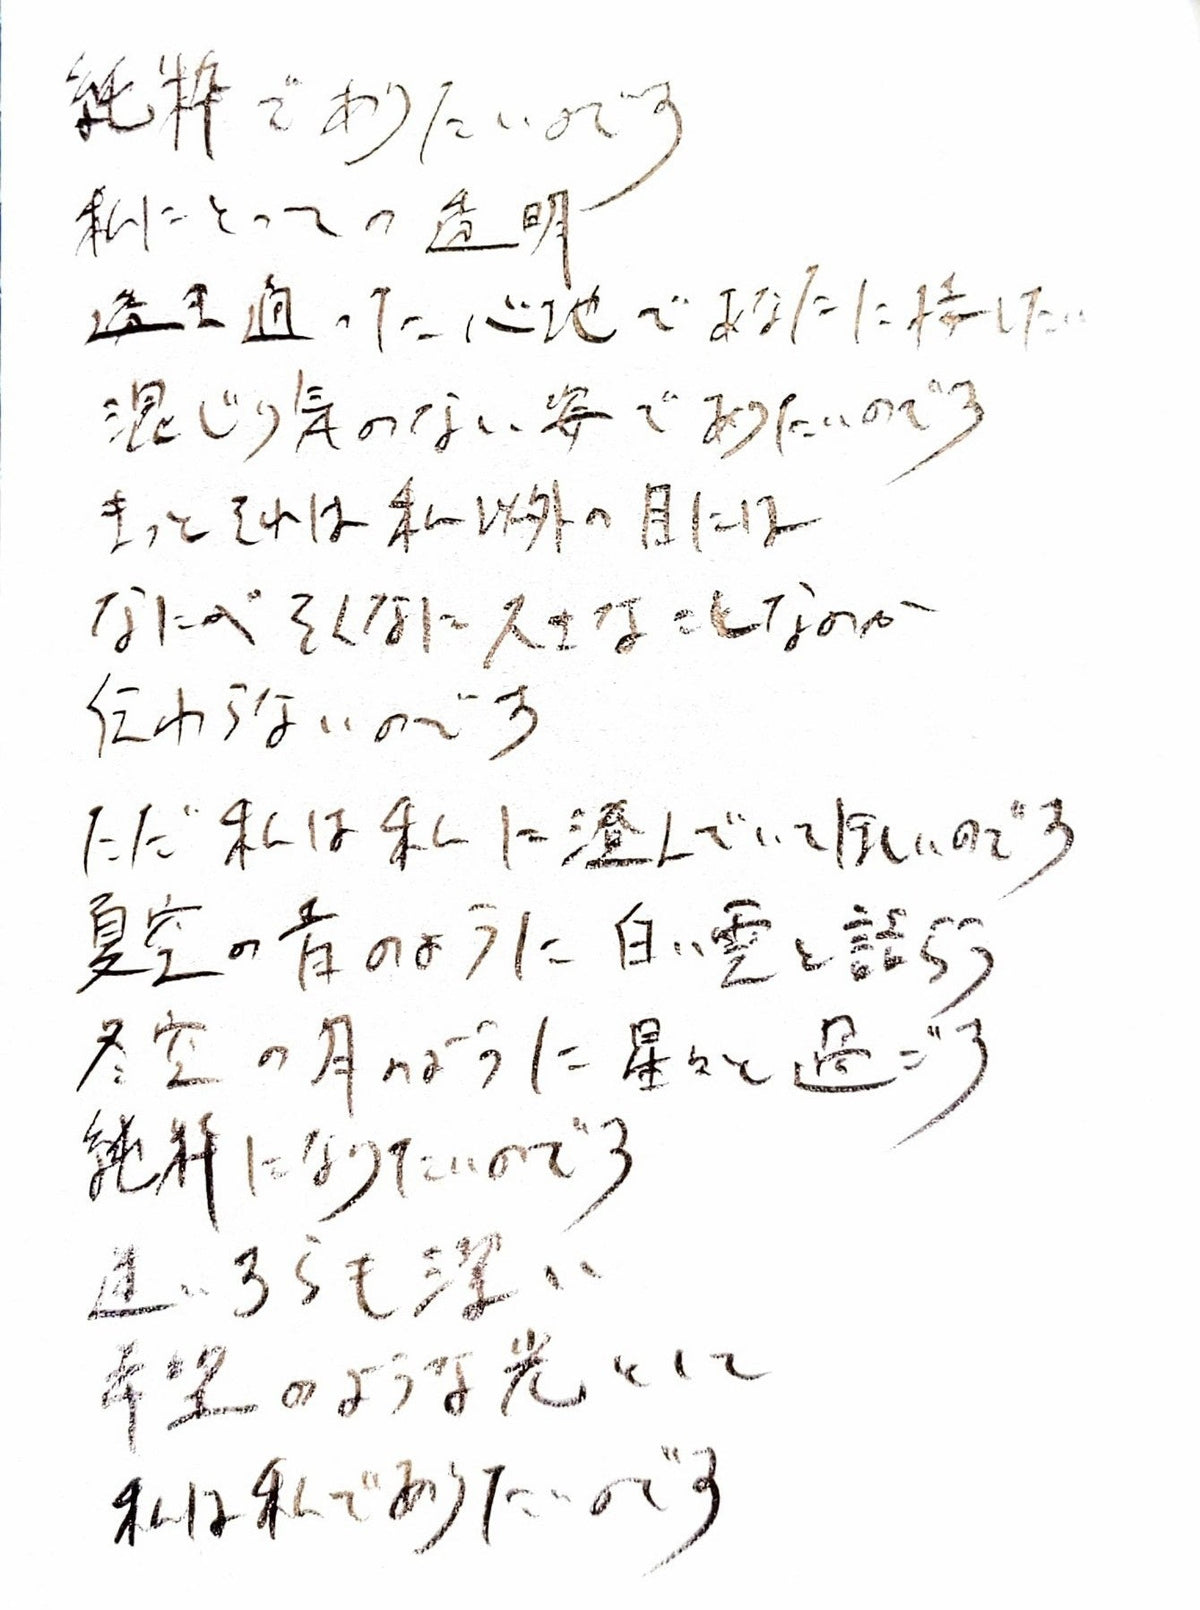 純粋でありたいのです
私にとっての透明
透き通った心地であなたに接したい
混じり気のない姿でありたいのです
きっとそれは私以外の目には
なにがそんなに大丈なことなのか
伝わらないのです
ただ私は私に澄んでいてほしいのです
夏空の青のように白い雲と話そう
冬空の月のように星々と過ごそう
純粋になりたいのです
よりも深い
希望のような光として
私は私でありたいのです